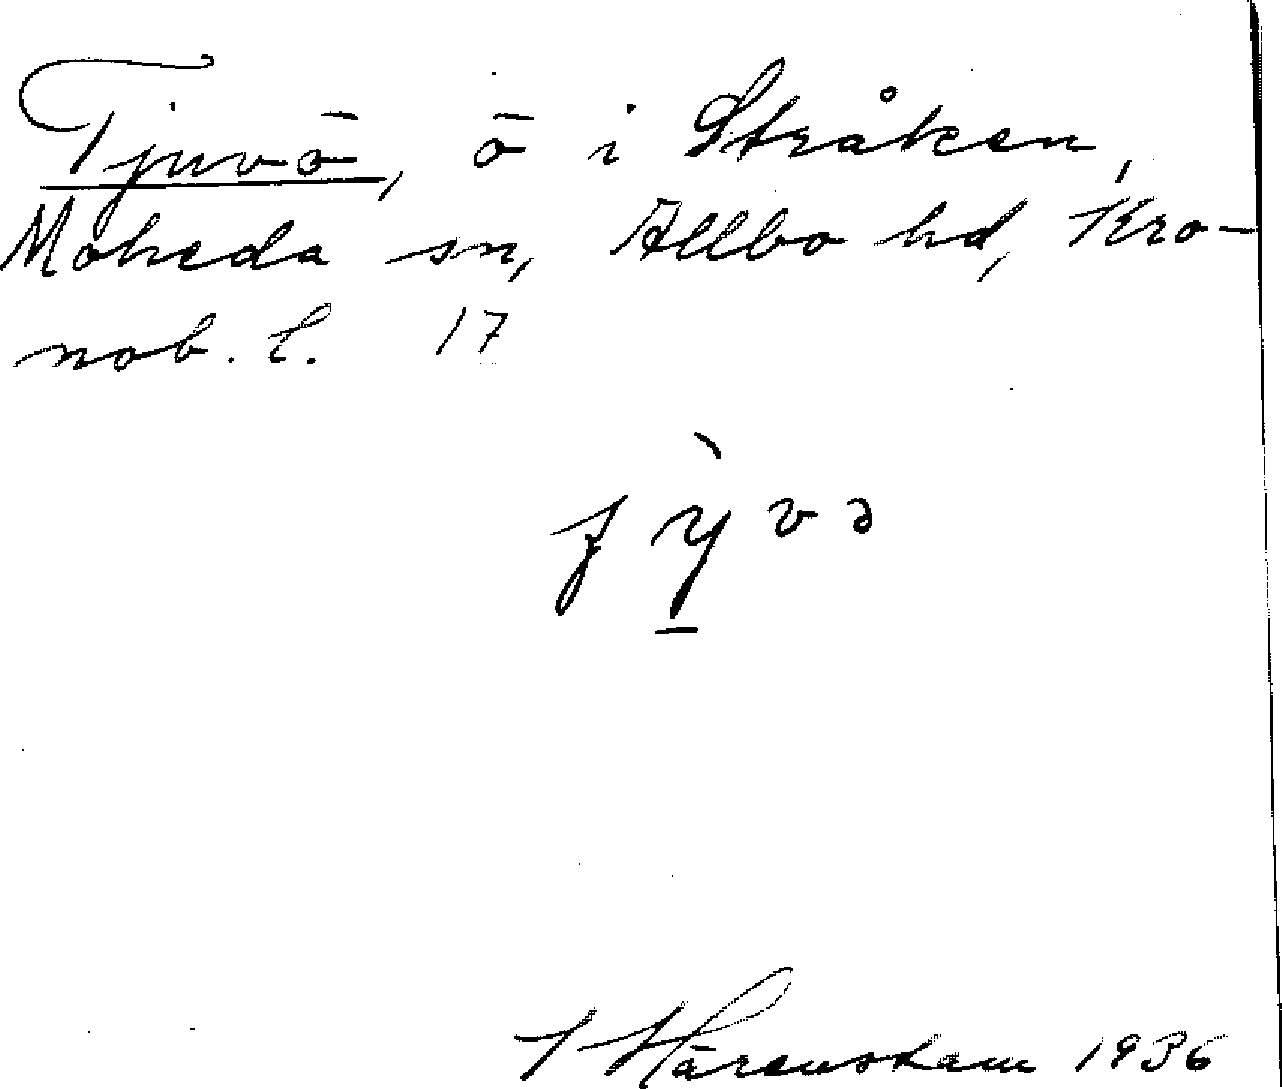 Tjuvö, ö i Stråken,
Moheda sn, Allbo hd, Kro-
nob. l. 17
J Härenstam 1936